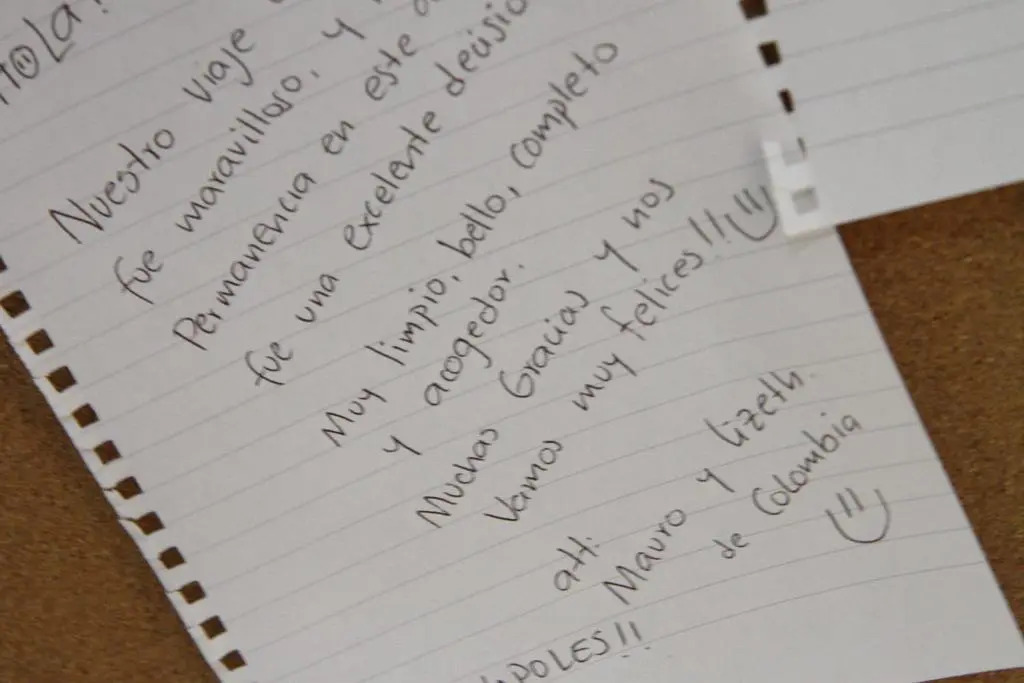 HOLA!
Nuestro viaje
fue maravilloso, y
Permanencia en este
fue una excelente decisio
Muy limpio, bello, completo
y acogedor.
Muchas Gracias y nos
Vamos muy felices!!
att:
Mauro y lizeth.
de Colombia
POLES!!